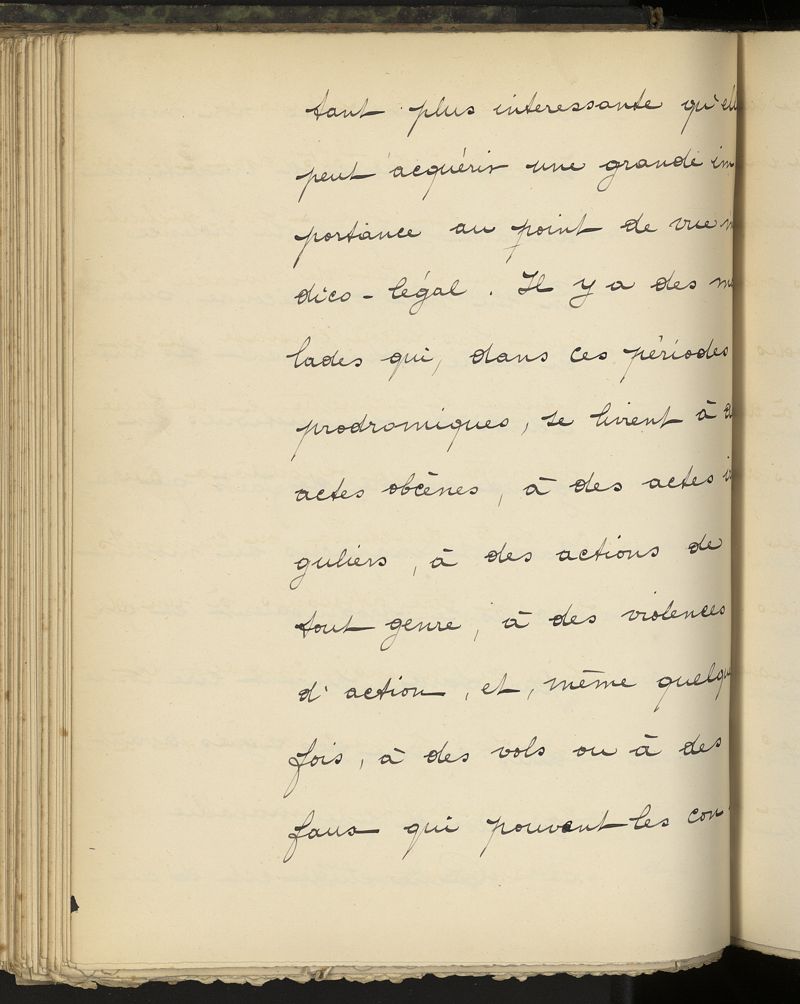 tant plus interessante qu'elle
peut acquérir une grande im
portance au point de vue
dico-légal. Il y a des ma
lades qui, dans ces périodes
prodromiques, se livrent à
actes obcènes, à des actes
guliers, à des actions de
tout genre, à des violences
d'action, et, même quelque
fois, à des vols ou à des
faux qui pouvant les con